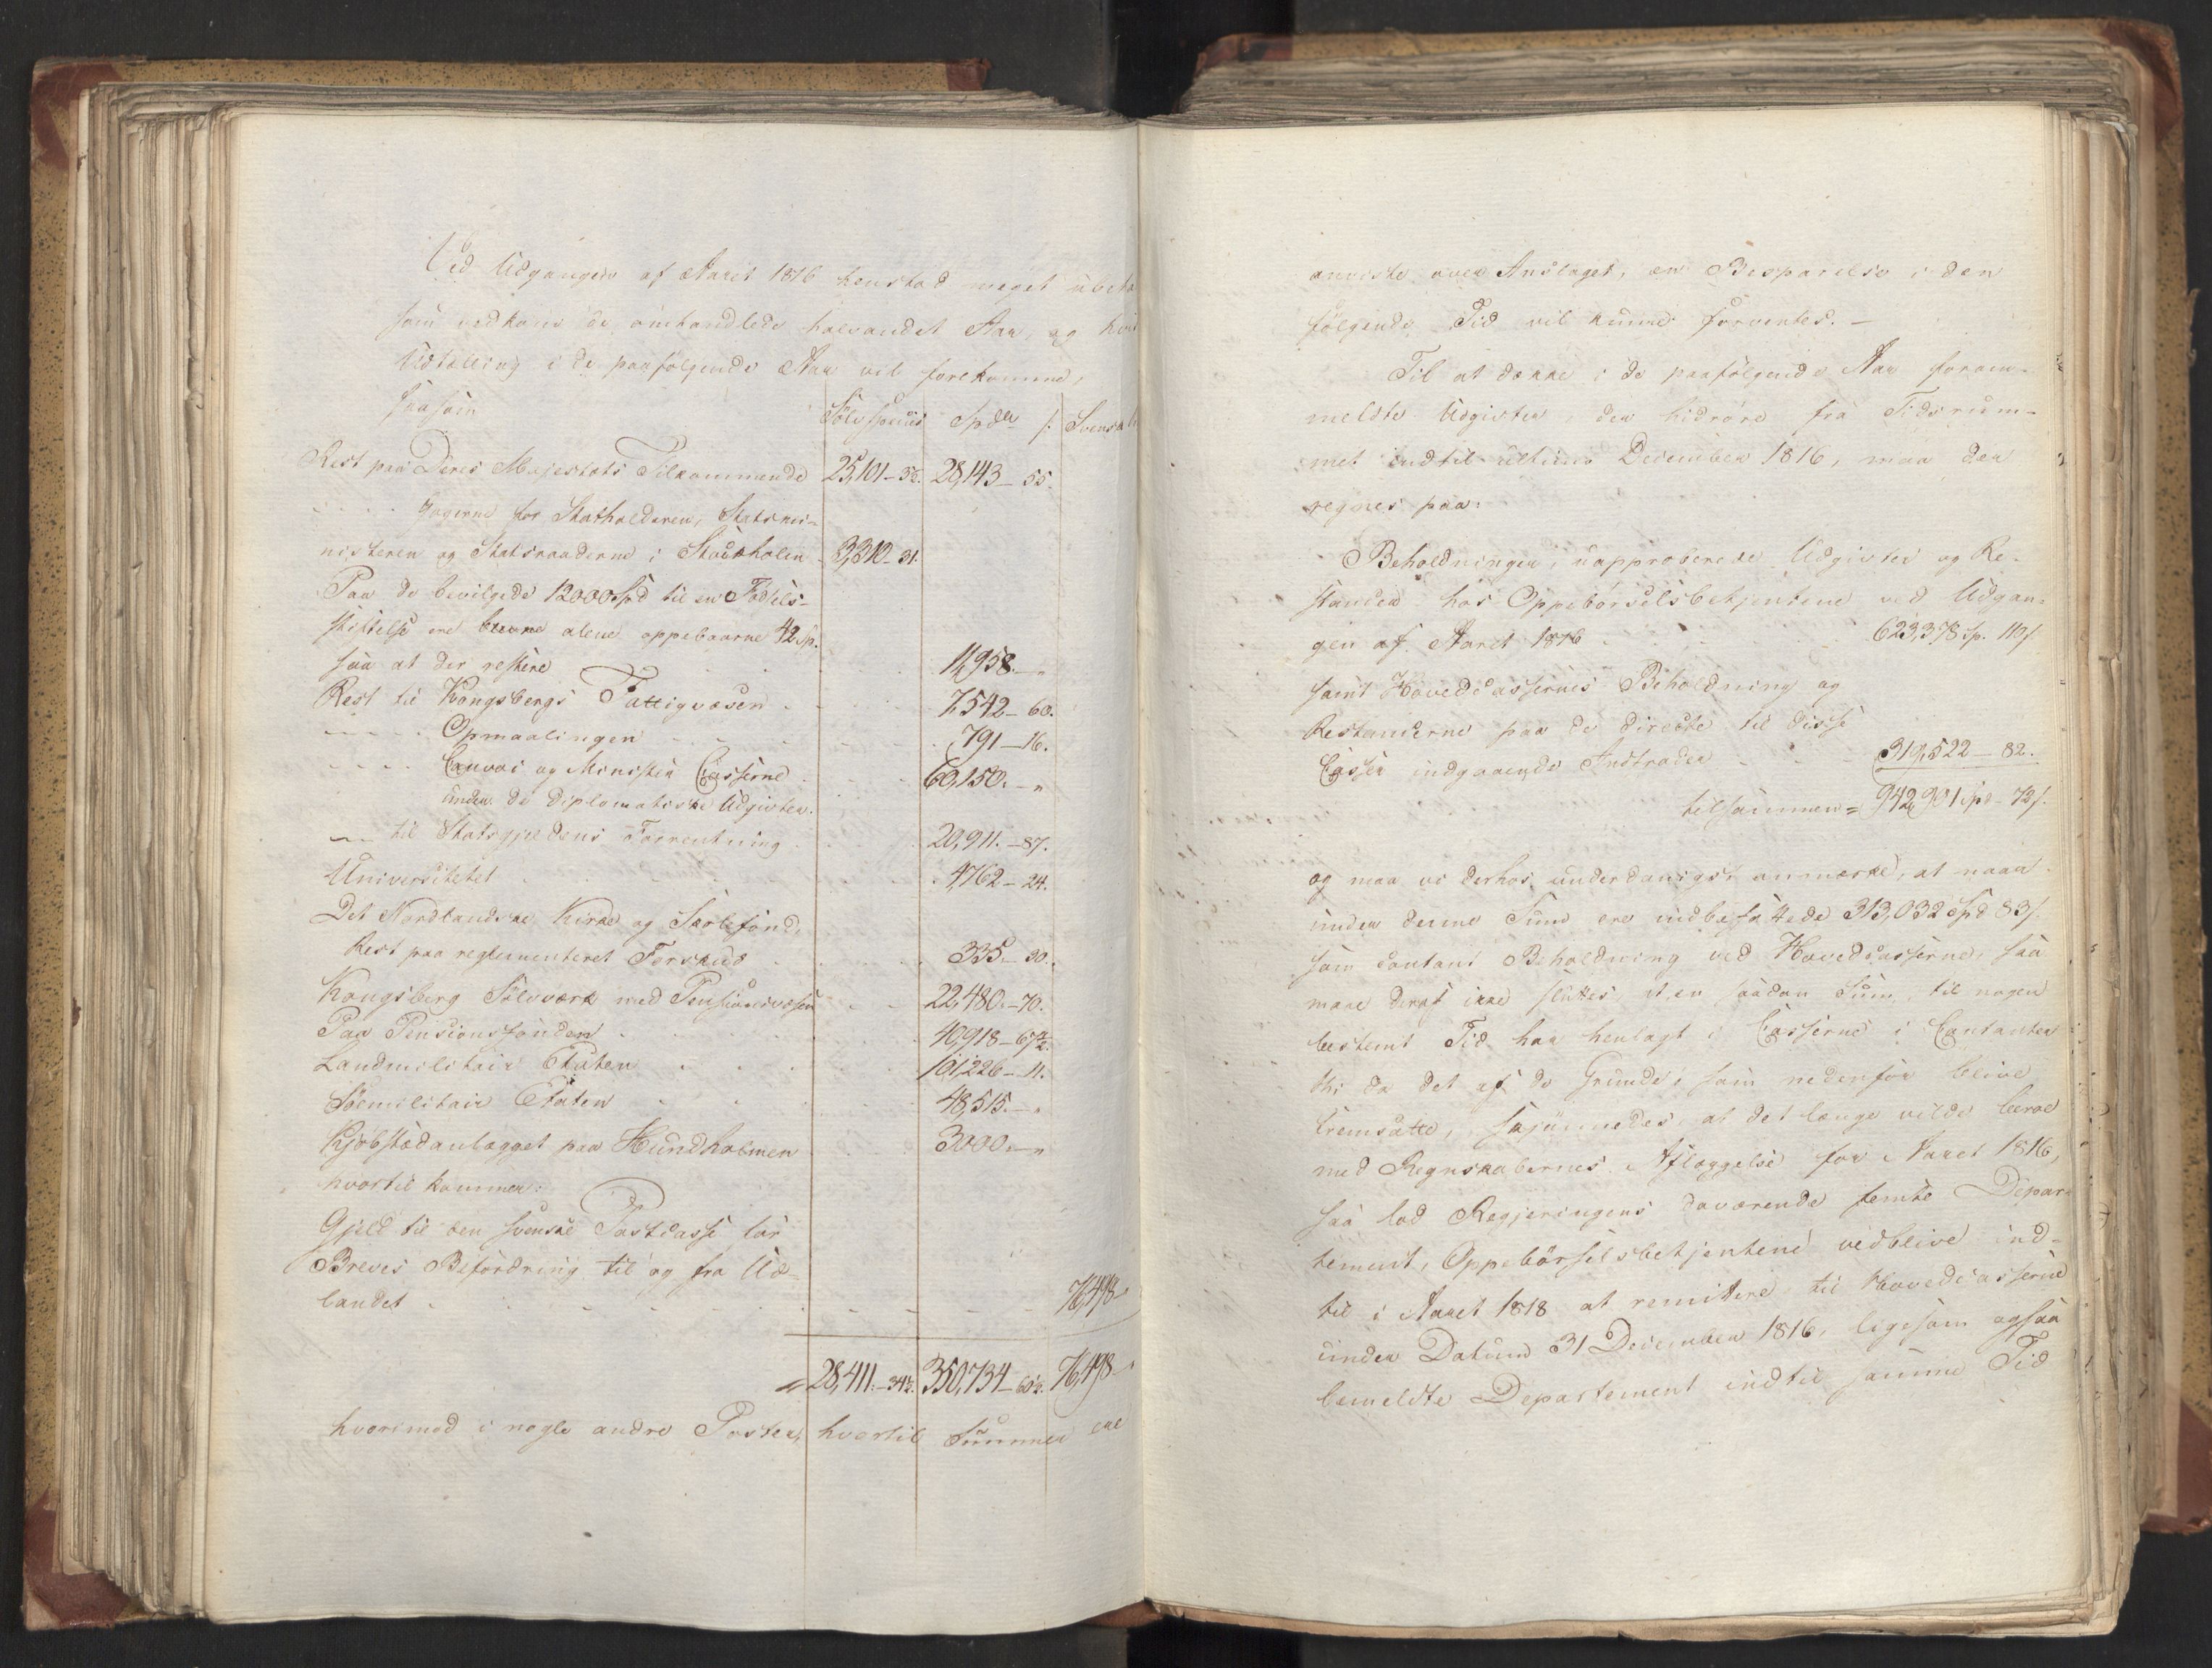 Ved Udgangen af Aaret 1816 henstod meget ubeta
som vedkom de omhandlede halvandet Aar, og hvis
Udtælling i de paafølgende Aar vil forekomme,
saasom
Sølv species Spdr /: Svensk
Rest paa Deres Majestæts Tilkommende 25,101 - 3½. 28,143 - 55.
- - - - Gagerne for Statholderen, Statsmi-
nisteren og Statsraaderne i Stockholm 3,310 - 31.
Paa de bevilgede 12000 Spd til en Fødsels-
stiftelse ere kunne alene oppebaarne 42 Sp.
saa at der restere 11,958. - „
Rest til Kongsbergs Fattigvæsen 7,542 - 60.
- - - - Opmaalingen 791 - 16.
- - - - Convoi og Minister Casserne 60,150. - „
under de diplomatiske Udgifter.
- - til Statsgjeldens Forrentning 20,911. - 87.
Universitetet 4,762 - 24.
Det Nordlandske Kirke og Skolefond,
Rest paa reglementeret Forskud 335. - 30.
Kongsberg Sølvværk med Pensionsvæsen 22,480. - 70.
Paa Pensionsfonden 40,918 - 67½.
Landmilitair Etaten 101,226 - 11.
Søemilitair Etaten 48,515. - „
Kjøbstædanlægget paa Hundholmen 3000. - „
hvortil kommer:
Gjeld til den svenske Postcasse for
Breves Befordring til og fra Ud-
landet 76,498
= 28,411. - 34½. 350,734 - 60½. 76,498
hvorimod i nogle andre Poster, hvortil Summer ere
anviste over Anslaget, en Besparelse i den
følgende Tid vil kunne forventes. -
Til at dække i de paafølgende Aar foran-
meldte Udgifter, der hidrøre fra Tidsrum-
met indtil ultimo December 1816, maa der
regnes paa:
Beholdningen, uapproberede Udgifter og Re-
stancer hos Oppebørselsbetjentene ved Udgan-
gen af Aaret 1816 623,378 Sp. 110/.
samt Hovedcassernes Beholdning og
Restancerne paa de directe til disse
Casser indgaaende Indtrader 319,522 - 82.
tilsammen = 942,901 Spd - 72/.
og maa vi derhos underdanigst anmærke, at naar
under denne Sum ere indbefattede 313,032 Spd 83/.
som contant Beholdning ved Hovedcasserne, saa
maae deraf ikke sluttes, at en saadan Sum til nogen
bestemt Tid har henlagt i Casserne i Contanter
thi da det af de Grunde, som nedenfor blive
fremsatte, skjønnedes, at det længe vilde vare
med Regnskabernes Aflæggelse for Aaret 1816,
saa lod Regjeringens daværende femte Depar-
tement, Oppebørselsbetjentene vedblive ind-
til i Aaret 1818 at remittere til Hovedcasserne
under Datum 31 December 1816, ligesom ogsaa
bemeldte Departement indtil samme Tid